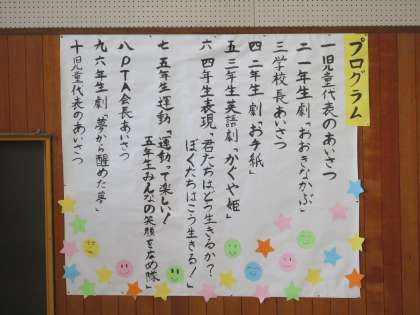 プログラム
一 児童代表のあいさつ
二 一年生 劇「おおきなかぶ」
三 学校長あいさつ
四 二年生 劇「お手紙」
五 三年生 英語劇「かぐや姫」
六 四年生 表現「君たちはどう生きるか?
ぼくたちはこう生きる!」
七 五年生 運動「運動って楽しい!
五年生みんなの笑顔を集め隊」
八 PTA会長あいさつ
九 六年生 劇「夢から醒めた夢」
十 児童代表のあいさつ